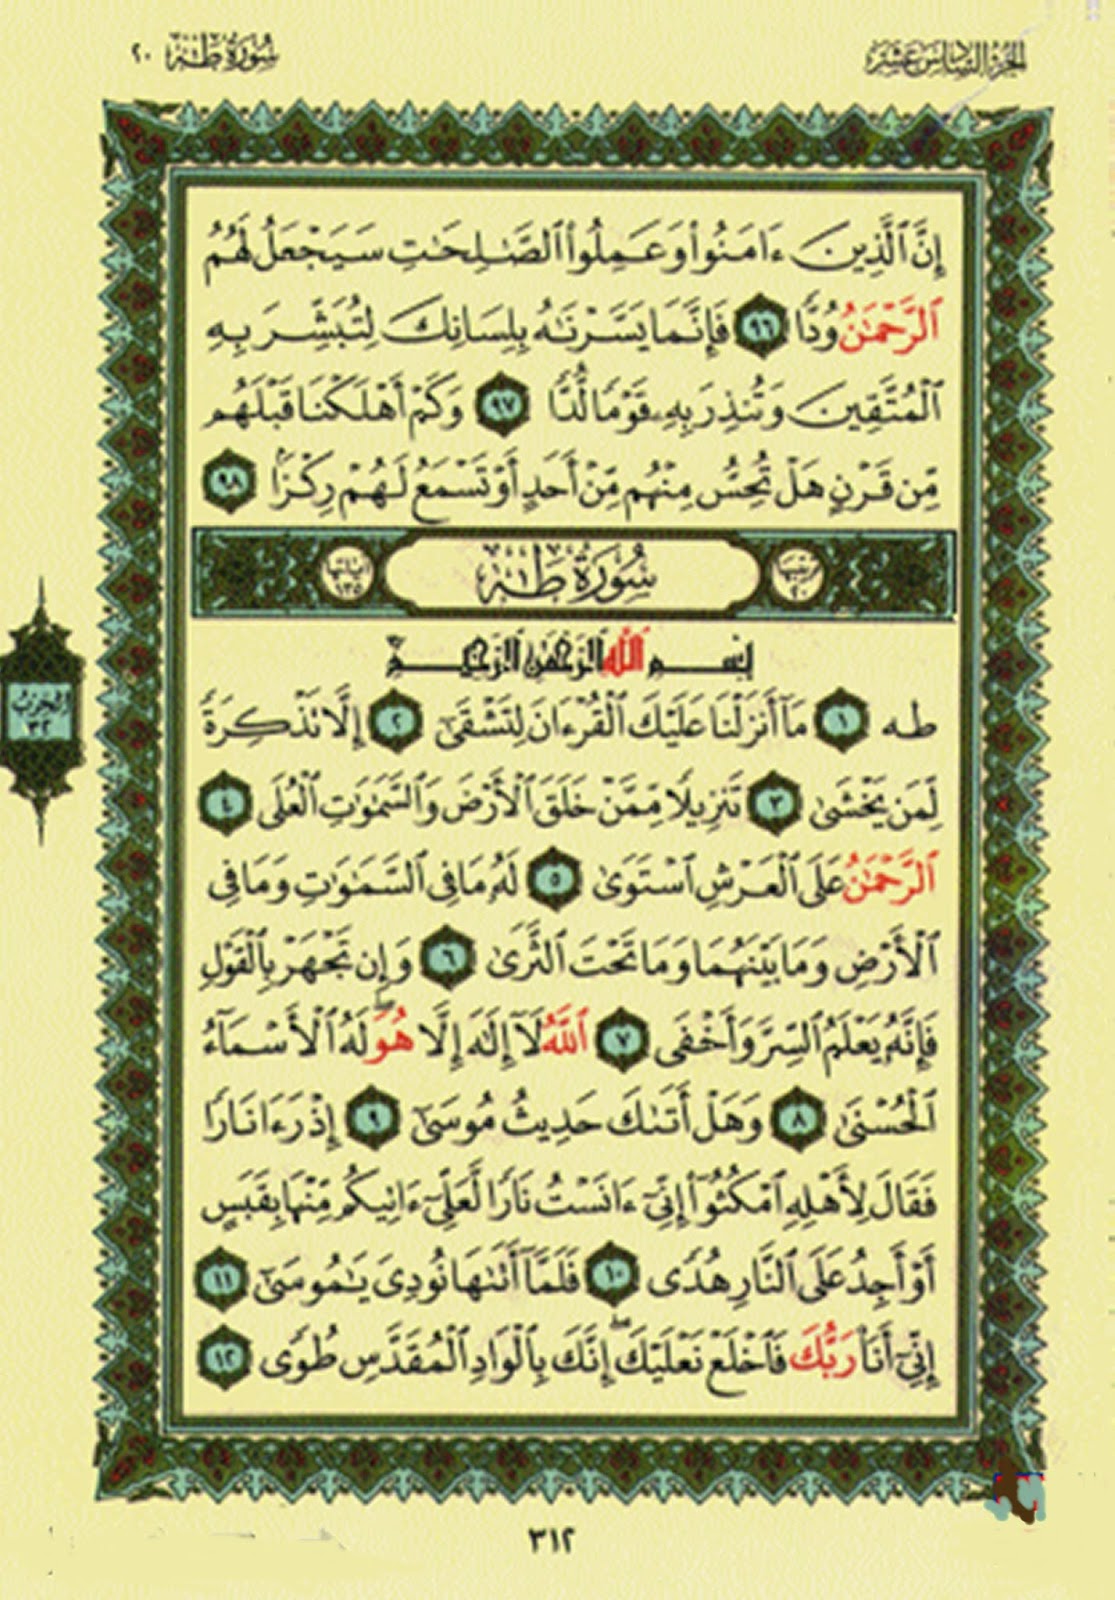 الجزء السادس عشر
سُورَةُ طه ٢٠
إِنَّ ٱلَّذِينَ ءَامَنُوا۟ وَعَمِلُوا۟ ٱلصَّٰلِحَٰتِ سَيَجْعَلُ لَهُمُ
ٱلرَّحْمَٰنُ وُدًّا ٩٦ فَإِنَّمَا يَسَّرْنَٰهُ بِلِسَانِكَ لِتُبَشِّرَ بِهِ
ٱلْمُتَّقِينَ وَتُنذِرَ بِهِۦ قَوْمًا لُّدًّا ٩٧ وَكَمْ أَهْلَكْنَا قَبْلَهُم
مِّن قَرْنٍ هَلْ تُحِسُّ مِنْهُم مِّنْ أَحَدٍ أَوْ تَسْمَعُ لَهُمْ رِكْزًۢا ٩٨
ترتيبها ٢٠ سُورَةُ طه آياتها ١٣٥
بِسْمِ ٱللَّهِ ٱلرَّحْمَٰنِ ٱلرَّحِيمِ
طه ١ مَآ أَنزَلْنَا عَلَيْكَ ٱلْقُرْءَانَ لِتَشْقَىٰٓ ٢ إِلَّا تَذْكِرَةً
لِّمَن يَخْشَىٰ ٣ تَنزِيلًا مِّمَّنْ خَلَقَ ٱلْأَرْضَ وَٱلسَّمَٰوَٰتِ ٱلْعُلَى ٤
ٱلرَّحْمَٰنُ عَلَى ٱلْعَرْشِ ٱسْتَوَىٰ ٥ لَهُۥ مَا فِى ٱلسَّمَٰوَٰتِ وَمَا فِى
ٱلْأَرْضِ وَمَا بَيْنَهُمَا وَمَا تَحْتَ ٱلثَّرَىٰ ٦ وَإِن تَجْهَرْ بِٱلْقَوْلِ
فَإِنَّهُۥ يَعْلَمُ ٱلسِّرَّ وَأَخْفَى ٧ ٱللَّهُ لَآ إِلَٰهَ إِلَّا هُوَ ۖ لَهُ ٱلْأَسْمَآءُ
ٱلْحُسْنَىٰ ٨ وَهَلْ أَتَىٰكَ حَدِيثُ مُوسَىٰٓ ٩ إِذْ رَءَا نَارًا
فَقَالَ لِأَهْلِهِ ٱمْكُثُوٓا۟ إِنِّىٓ ءَانَسْتُ نَارًا لَّعَلِّىٓ ءَاتِيكُم مِّنْهَا بِقَبَسٍ
أَوْ أَجِدُ عَلَى ٱلنَّارِ هُدًى ١٠ فَلَمَّآ أَتَىٰهَا نُودِىَ يَٰمُوسَىٰٓ ١١
إِنِّىٓ أَنَا۠ رَبُّكَ فَٱخْلَعْ نَعْلَيْكَ ۖ إِنَّكَ بِٱلْوَادِ ٱلْمُقَدَّسِ طُوًى ١٢
الحزب
٣٢
٣١٢